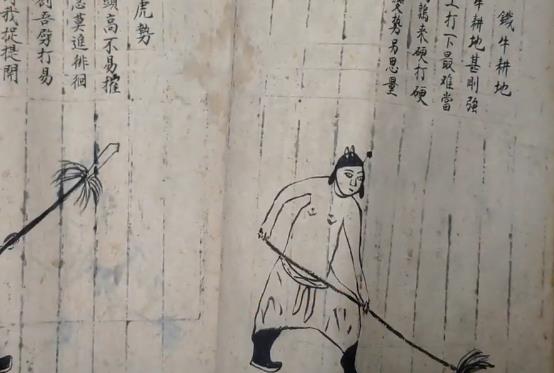 鐵牛耕地
牛耕地甚剛強
打下最難當
來硬打硬
勢另思量
虎勢
頭高不易
莫進徘徊
吾劈打易
我捉提開